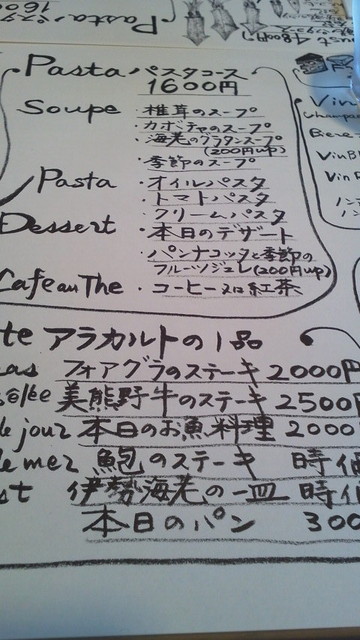 Pasta パスタコース
1600円
Soupe ・椎茸のスープ
・カボチャのスープ
・海老のグラタンスープ
(200円up)
・季節のスープ
Pasta ・オイルパスタ
・トマトパスタ
・クリームパスタ
Dessert ・本日のデザート
・パンナコッタと季節の
フルーツジュレ(200円up)
Cafe au The ・コーヒー又は紅茶
アラカルトの1品
フォアグラのステーキ 2000円
美熊野牛のステーキ 2500円
本日のお魚料理 2000
鮑のステーキ 時価
伊勢海老の一皿 時価
本日のパン 300